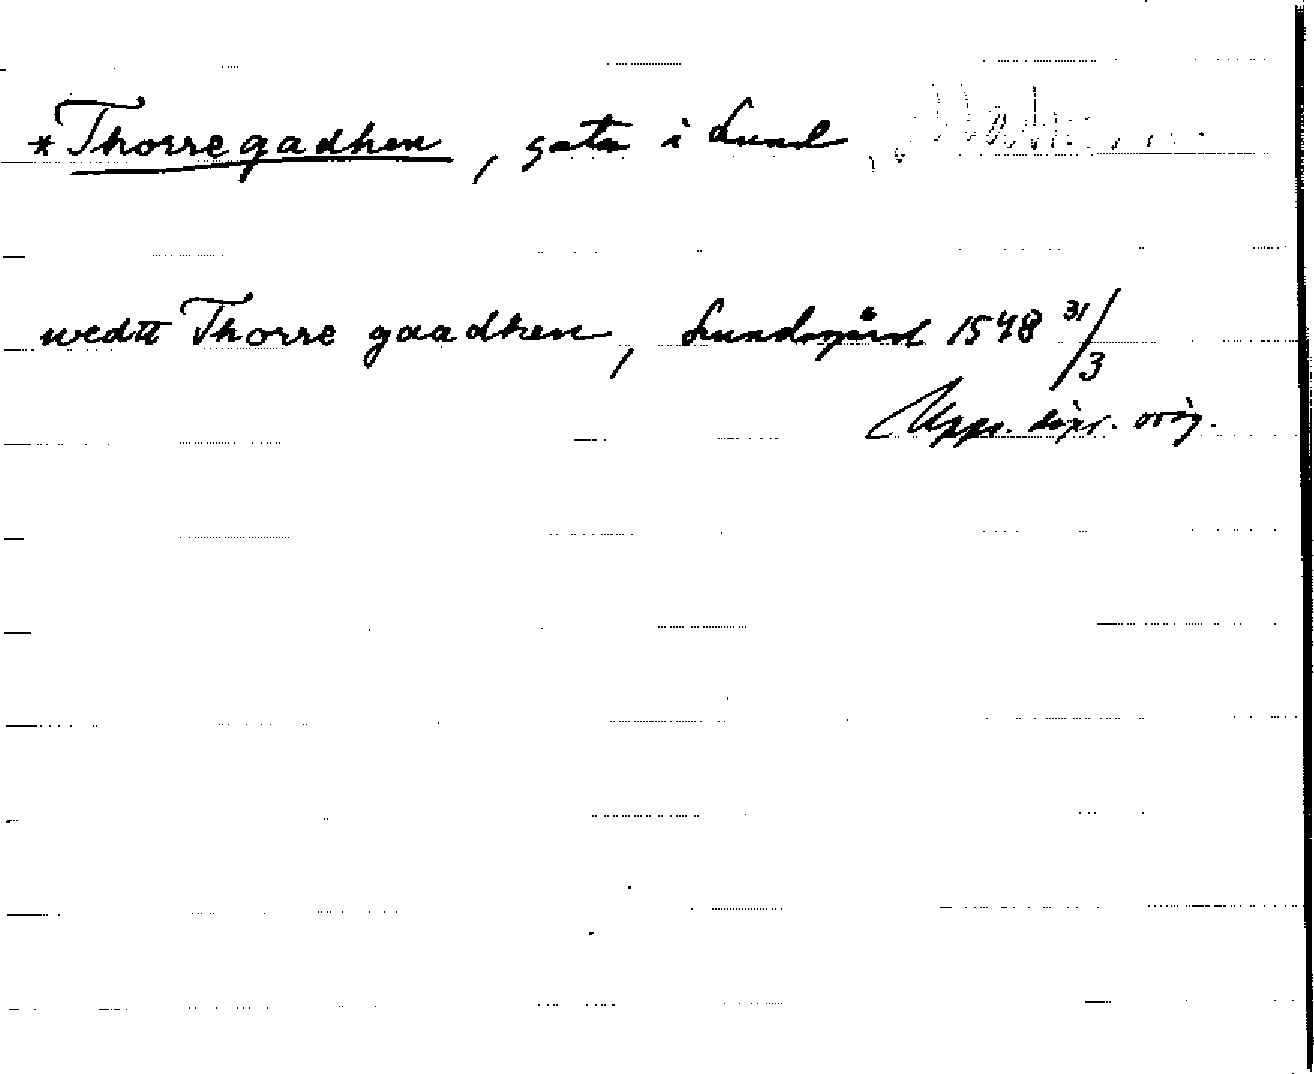 *Thorregadhen, gata i Lund
wedtt Thorre gaadhen, Lundsgård 1548 31/3
Upps. dipl. orig.